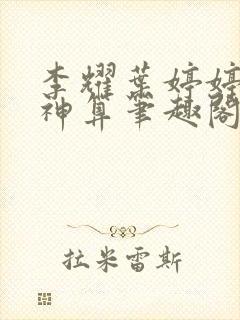 李耀葉婷婷
神算筆趣閣
拉米雷斯